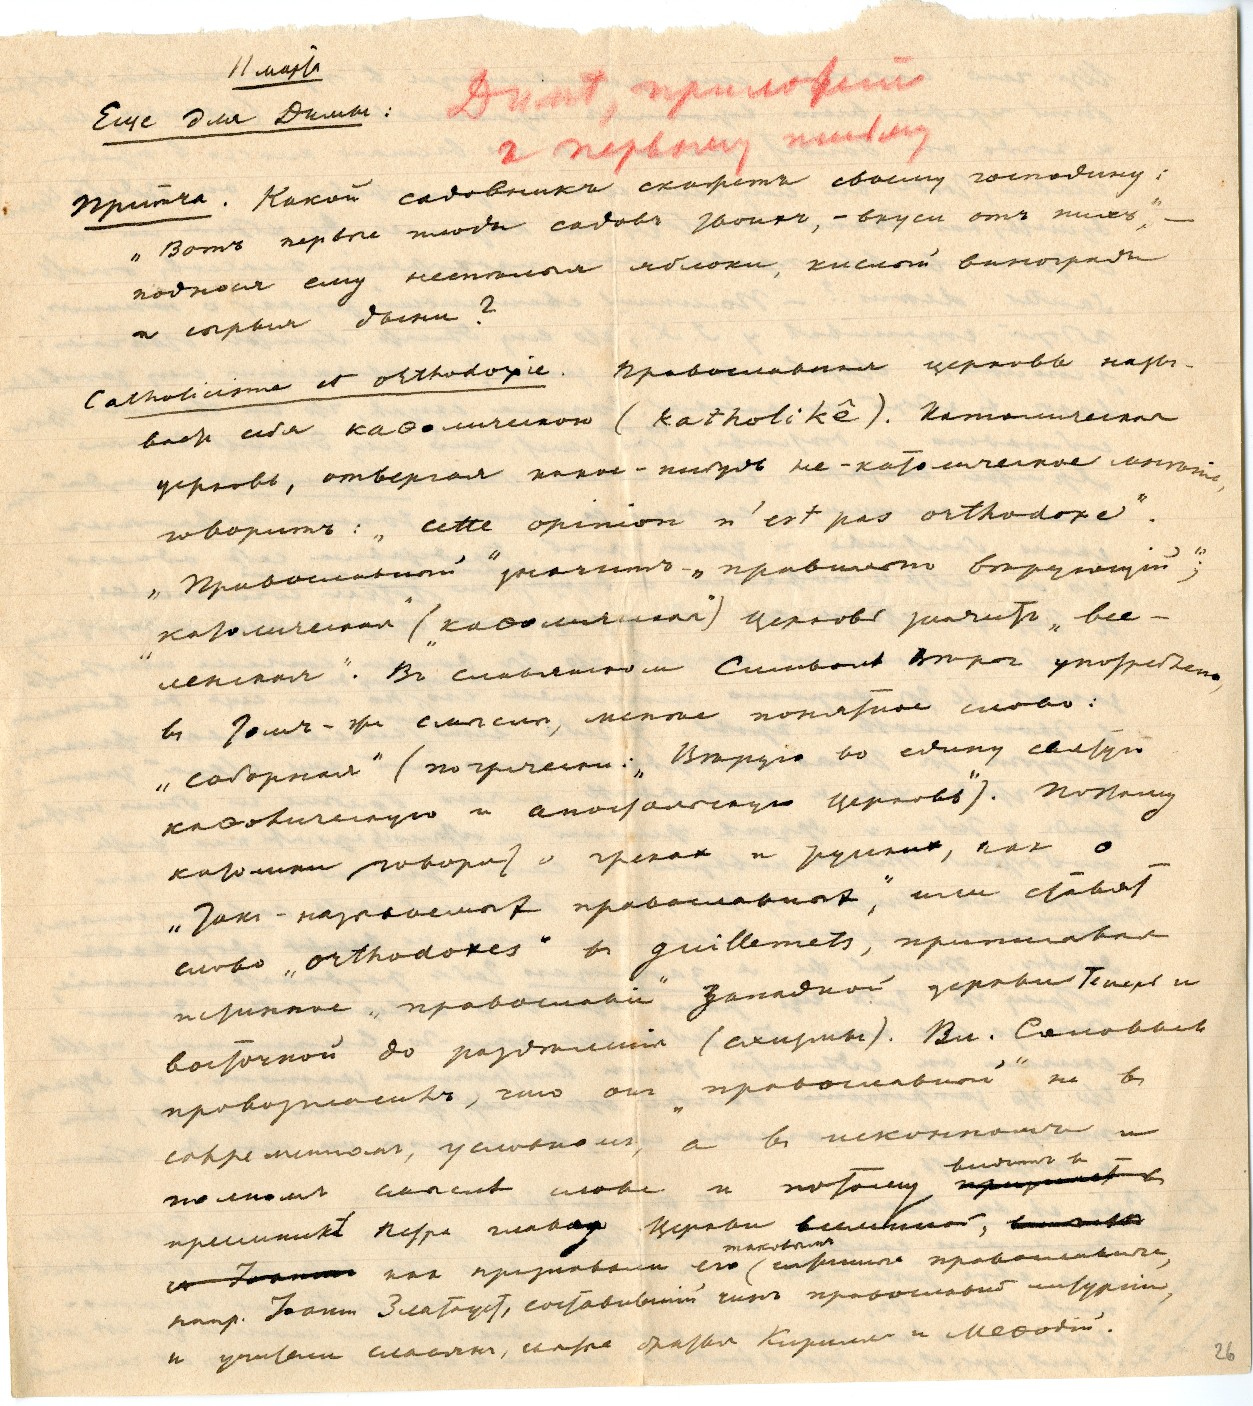 11 марта
Еще для Димы:
Димѣ, приложенiй
к первому письму
Притча. Какой садовникъ скажетъ своему господину:
„Вотъ первые плоды садовъ твоихъ, – вкуси отъ нихъ", –
поднося ему неспѣлыя яблоки, кислый виноградъ
и сырыя дыни?
Catholicisme et orthodoxie. Православная церковь назы-
ваетъ себя каѳолическою (katholikê). Католическая
церковь, отвергая какое-нибудь не-католическое мнѣнiе,
говоритъ: „cette opinion n'est pas orthodoxe".
„Православный" значитъ – „правильно вѣрующiй";
„католическая" („каѳолическая") церковь значитъ „все-
ленская". Въ славянском Символѣ Вѣры употреблено,
въ томъ-же смыслѣ, менѣе понятное слово:
„соборная" (по гречески: „Вѣрую во едину святую
каѳолическую и апостольскую церковь"). Потому
католики говорят о греках и русских, как о
„такъ-называемыхъ православныхъ", или ставят
слово „orthodoxes" въ guillemets, приписывая
истинное „православiе" Западной церкви теперь и
восточной до раздѣленiя (схизмы). Вл. Соловьевъ
провозгласилъ, что онъ „православный" не въ
современномъ, условномъ, а въ исконномъ и
полномъ смыслѣ слова и потому видитъ в
преемникѣ Петра главу Церкви вселенской,
как признавали его таковымъ (истинно православные,
напр. Iоаннъ Златоуст, составившiй чинъ православной литургiи,
и учители славянъ, святые братья Кириллъ и Меѳодiй.
26